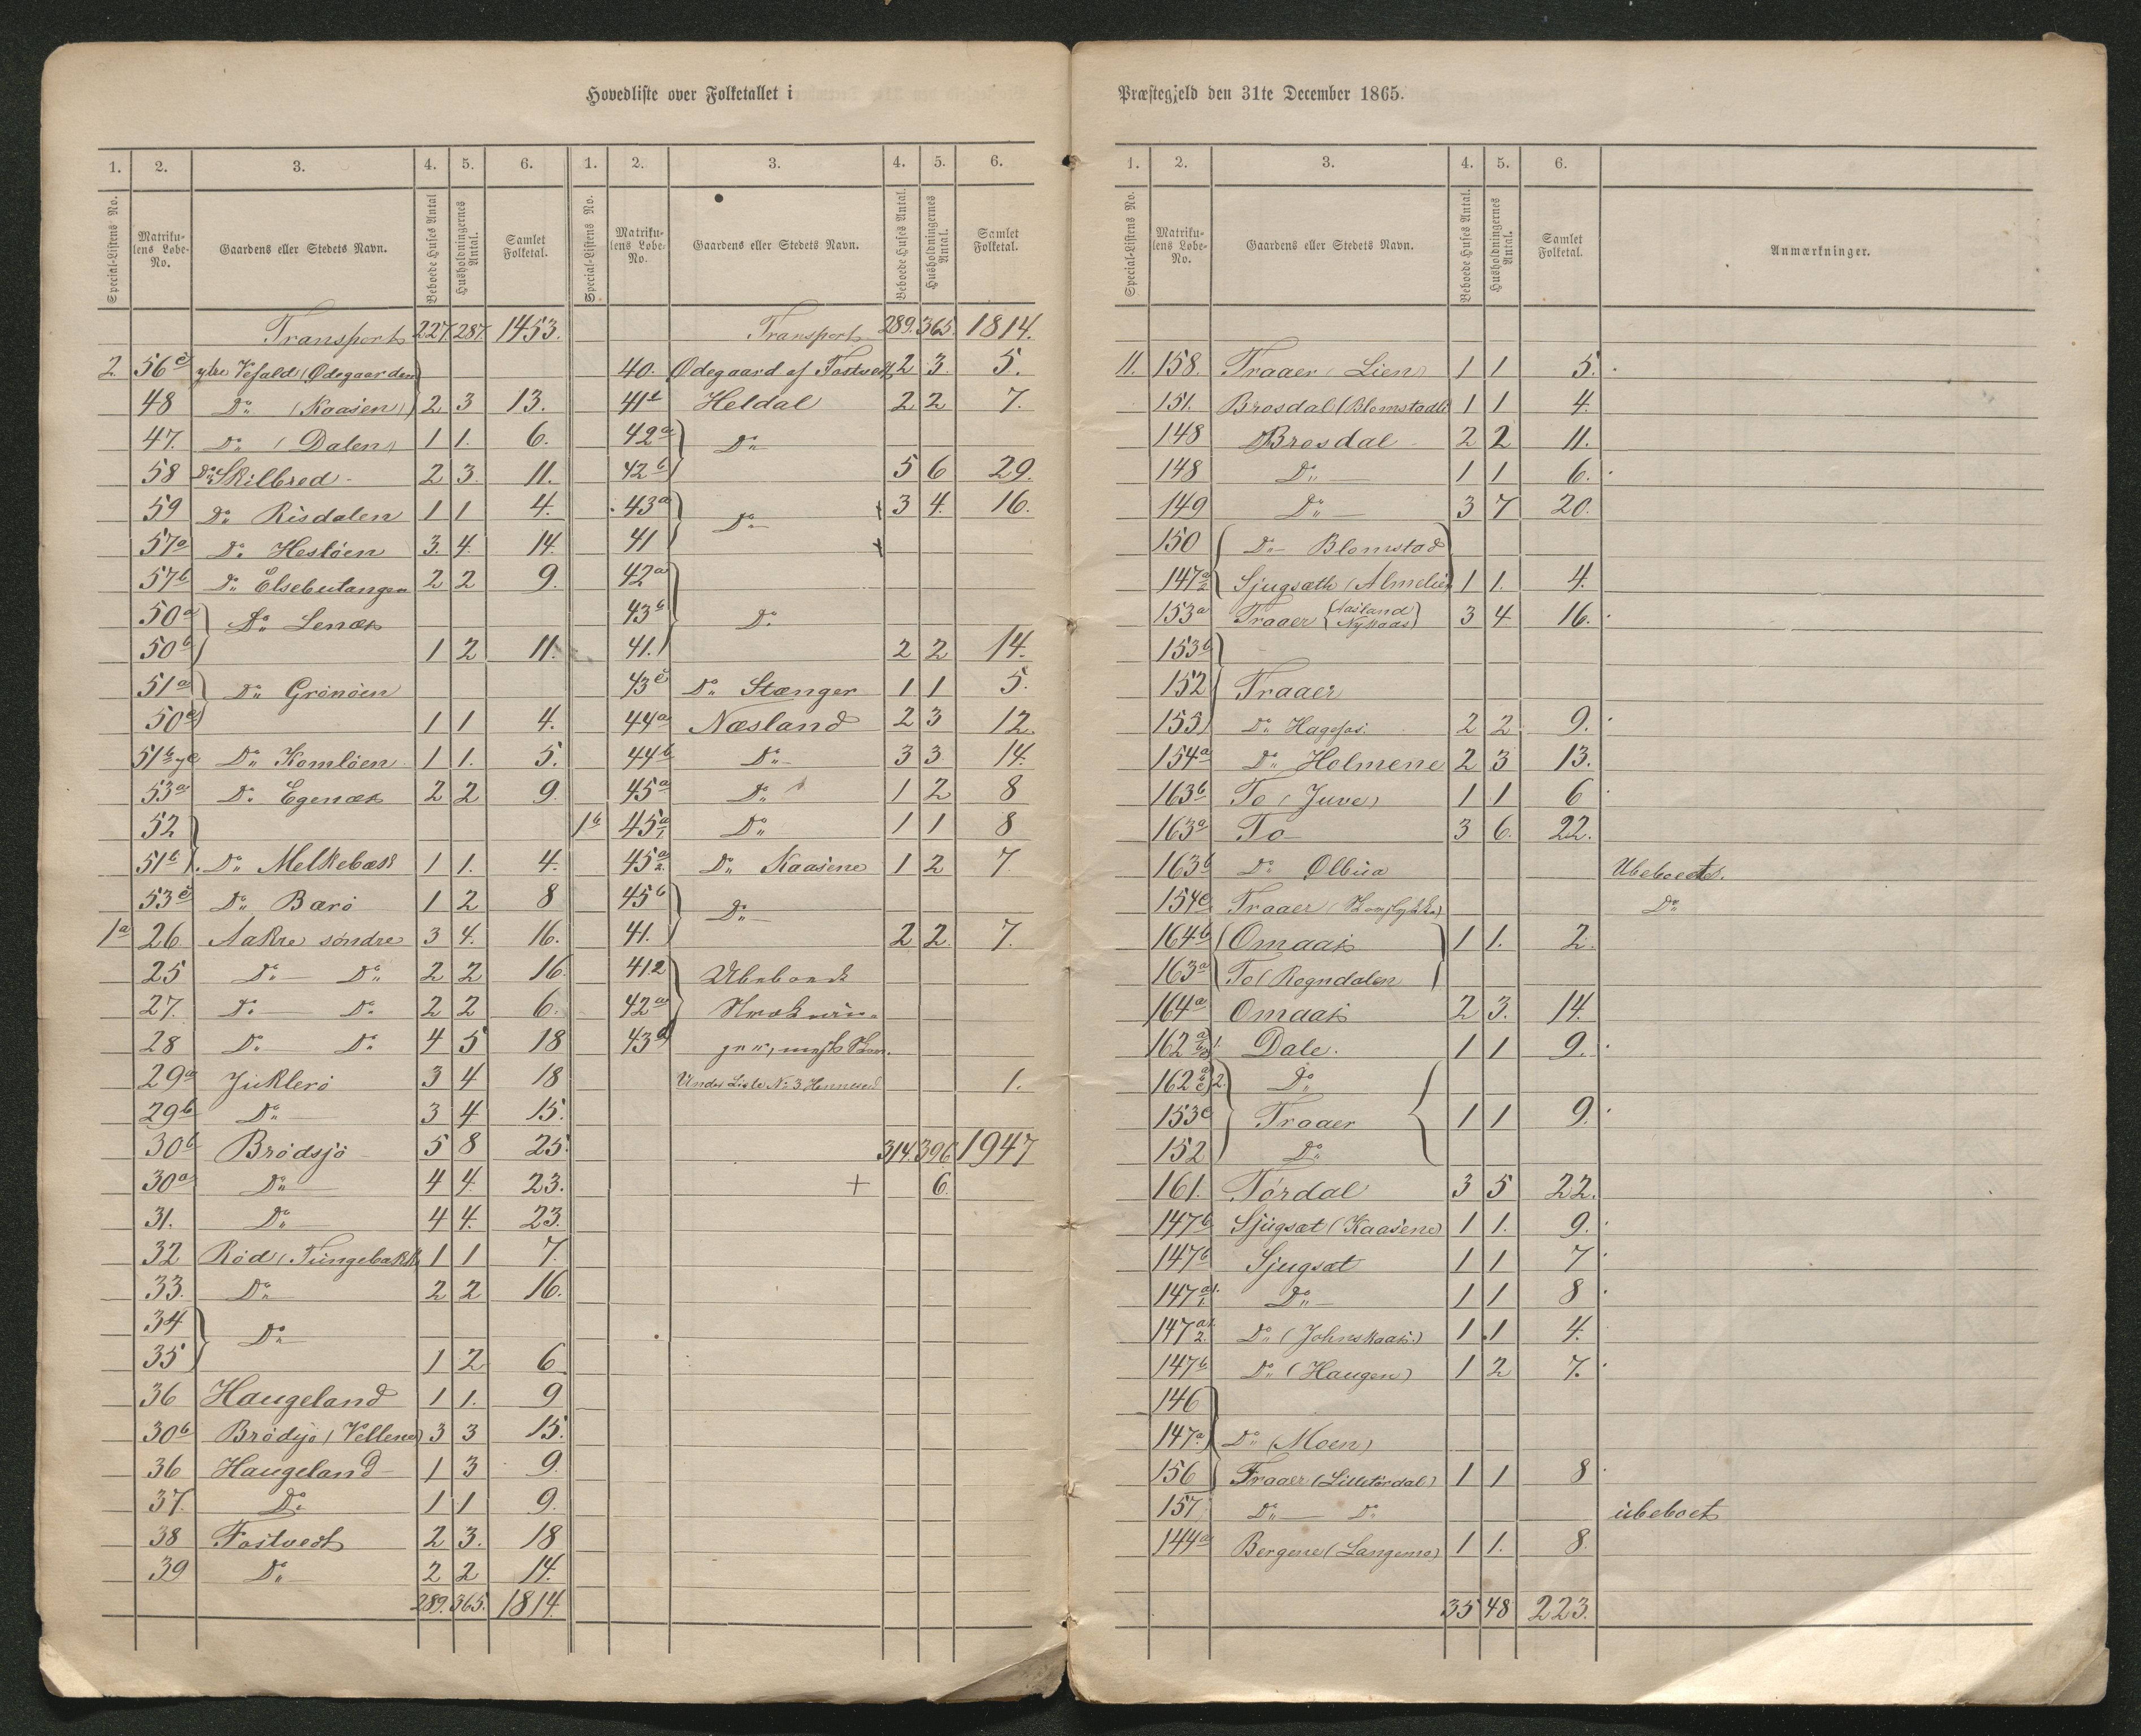 Hovedliste over Folketallet i
Præstegjeld den 31te December 1865.
1. 2. 3. 4. 5. 6.
Special-Listens No. Matrikulens Løbe-No. Gaardens eller Stedets Navn. Beboede Huses Antal Husholdningernes Antal. Samlet Folketal.
Transport 227. 287. 1453.
2 56c ytre Vefald (Ødegaarden
48 Do (Kaasen) 2 3 13.
47. Do (Dalen) 1 1. 6.
58 Do Skilbred 2 3. 11.
59 Do Risdalen 1 1 4.
57a Do Hestöen 3. 4. 14.
57b Do Elsebutangen 2 2 9.
50a Do Lenæs
50b 1 2 11.
51a Do Grönöen
50a 1 1 4.
51b Do Komlöen 1 1. 5.
53a Do Egenæs 2 2 9.
52
51b Do Melkebæk 1 1. 4.
53c Do Barö 1 2 8
1a 26 Aakre söndre 3 4. 16.
25 Do Do 2 2 16.
27. Do Do 2 2 6.
28 Do Do 4 5 18
29a Juklerö 3 4 18
29b Do 3 4 15.
30b Brödsjö 5 8 25.
30a Do 4 4. 23.
31. Do 4 4. 23.
32 Röd (Tungebakk 1 1 7.
33. Do 2 2 16.
34 Do
35 1 2 6
36 Haugeland 1 1. 9
30b Brödsjö (Vellene) 3 3 15.
36 Haugeland 1 3 9.
37. Do 1 1 9.
38 Fostvedt 2 3. 18
39 Do 2 2 14.
289. 365. 1814.
1. 2. 3. 4. 5. 6.
Special-Listens No. Matrikulens Løbe-No. Gaardens eller Stedets Navn. Beboede Huses Antal. Husholdningernes Antal. Samlet Folketal.
Transport 289. 365. 1814.
40. Ødegaard af Fostvedt 2 3. 5.
41 Heldal 2 2 7.
42a Do
42b 5 6 29.
43a Do 3 4. 16.
41
42a
43b Do
41. 2 2 14.
43c Do Stænger 1 1 5.
44a Næsland 2 3 12.
44b Do 3 3 14.
45a Do 1 2 8
1b 45a1 Do 1 1 8
45a2 Do Kaasene 1 2 7
45b Do
41. 2 2. 7.
412 Ubeboede
42a
43d
Under Liste No 3 1.
314. 396 1947
+ 6.
1. 2. 3. 4. 5. 6.
Special-Listens No. Matrikulens Løbe-No. Gaardens eller Stedets Navn. Beboede Huses Antal. Husholdningernes Antal. Samlet Folketal. Anmærkninger.
11. 158. Traaer (Lien) 1 1 5.
151. Brosdal (Blomstadli 1 1 4.
148 Brosdal 2 2 11.
148 Do 1 1 6.
149 Do 3 7 20.
150 Do Blomstad
147a2 Sjugsæth (Almelien 1 1. 4.
153a Traaer (Aasland Nykaas) 3 4 16.
153b
152 Traaer
155 Do 2 2 9.
154a Do Holmene 2 3 13.
163b To (Juve) 1 1 6
163a To 3 6. 22.
163b Do Ølbua Ubeboet.
154c Traaer Do
164b Omaas 1 1. 2.
163a To (Rogndalen
164a Omaas 2 3. 14.
162 1. Dale. 1 1 9.
162 2. Do
153c Traaer 1 1 9.
152 Do
161. Tördal 3 5 22.
147b Sjugsæt (Kaasene) 1 1. 9.
147b Sjugsæt 1 1 7
147a1 Do 1 1 8
147a2. Do (Johnskaas.) 1 1 4.
147b Do (Haugen) 1 2 7.
146
147a. Do (Moen)
156 Traaer (Lilletördal) 1 1 8
157 Do Do ubeboet
144a Bergene (Langemo) 1 1. 8.
35 48 223.